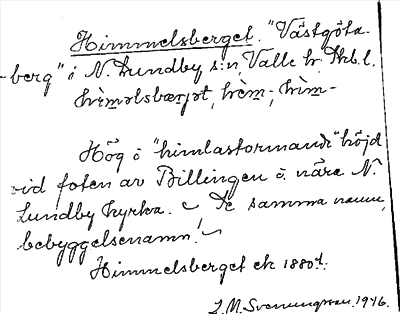 Himmelsberget. "Västgöta-
-berg" i N. Lundby s:n, Valle hd Skb. l.
hìməlsbærjət, hèm-, hìm-
Hög o "himlastormande" höjd
vid foten av Billingen o. nära N.
Lundby kyrka. ~ De samma namn,
bebyggelsenamn! ~
Himmelsberget ek 1880t.
J. M. Svennungsson. 1946.